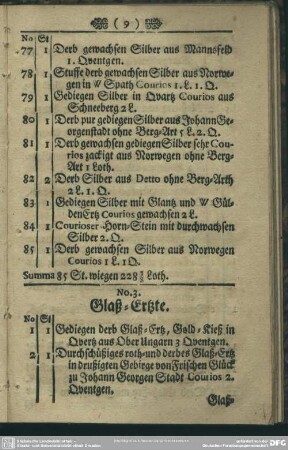 ( 9 )
No St
77 1 Derb gewachsen Silber aus Mannsfeld
1. Qventgen.
78 1 Stuffe derb gewachsen Silber aus Norwe-
gen in W Spath Courios 1. L. 1. Q.
79 1 Gediegen Silber in Qvartz Courios aus
Schneeberg 2 L.
80 1 Derb pur gediegen Silber aus Johann Ge-
orgenstadt ohne Berg-Art 5 L. 2. Q.
81 1 Derb gewachsen gediegen Silber sehr Cou-
rios zackigt aus Norwegen ohne Berg-
Art 1 Loth.
82 2 Derb Silber aus Detto ohne Berg-Arth
2 L. 1. Q.
83 1 Gediegen Silber mit Glantz und W Gül-
den Ertz Courios gewachsen 2 L.
84 1 Courioser-Horn-Stein mit durchwachsen
Silber 2. Q.
85 1 Derb gewachsen Silber aus Norwegen
Courios 1 L. 1 Q.
Summa 85 St. wiegen 228 Loth.
No. 3.
Glaß-Ertzte.
No St
1 1 Gediegen derb Glaß-Ertz, Gold-Kieß in
Qvertz aus Ober Ungarn 3 Qventgen.
2 1 Durchschüßiges roth- und derbes Glaß-Ertz
in drußigten Gebirge von Frischen Glück
zu Johann Georgen Stadt Courios 2.
Qventgen.
Glaß-
DFG